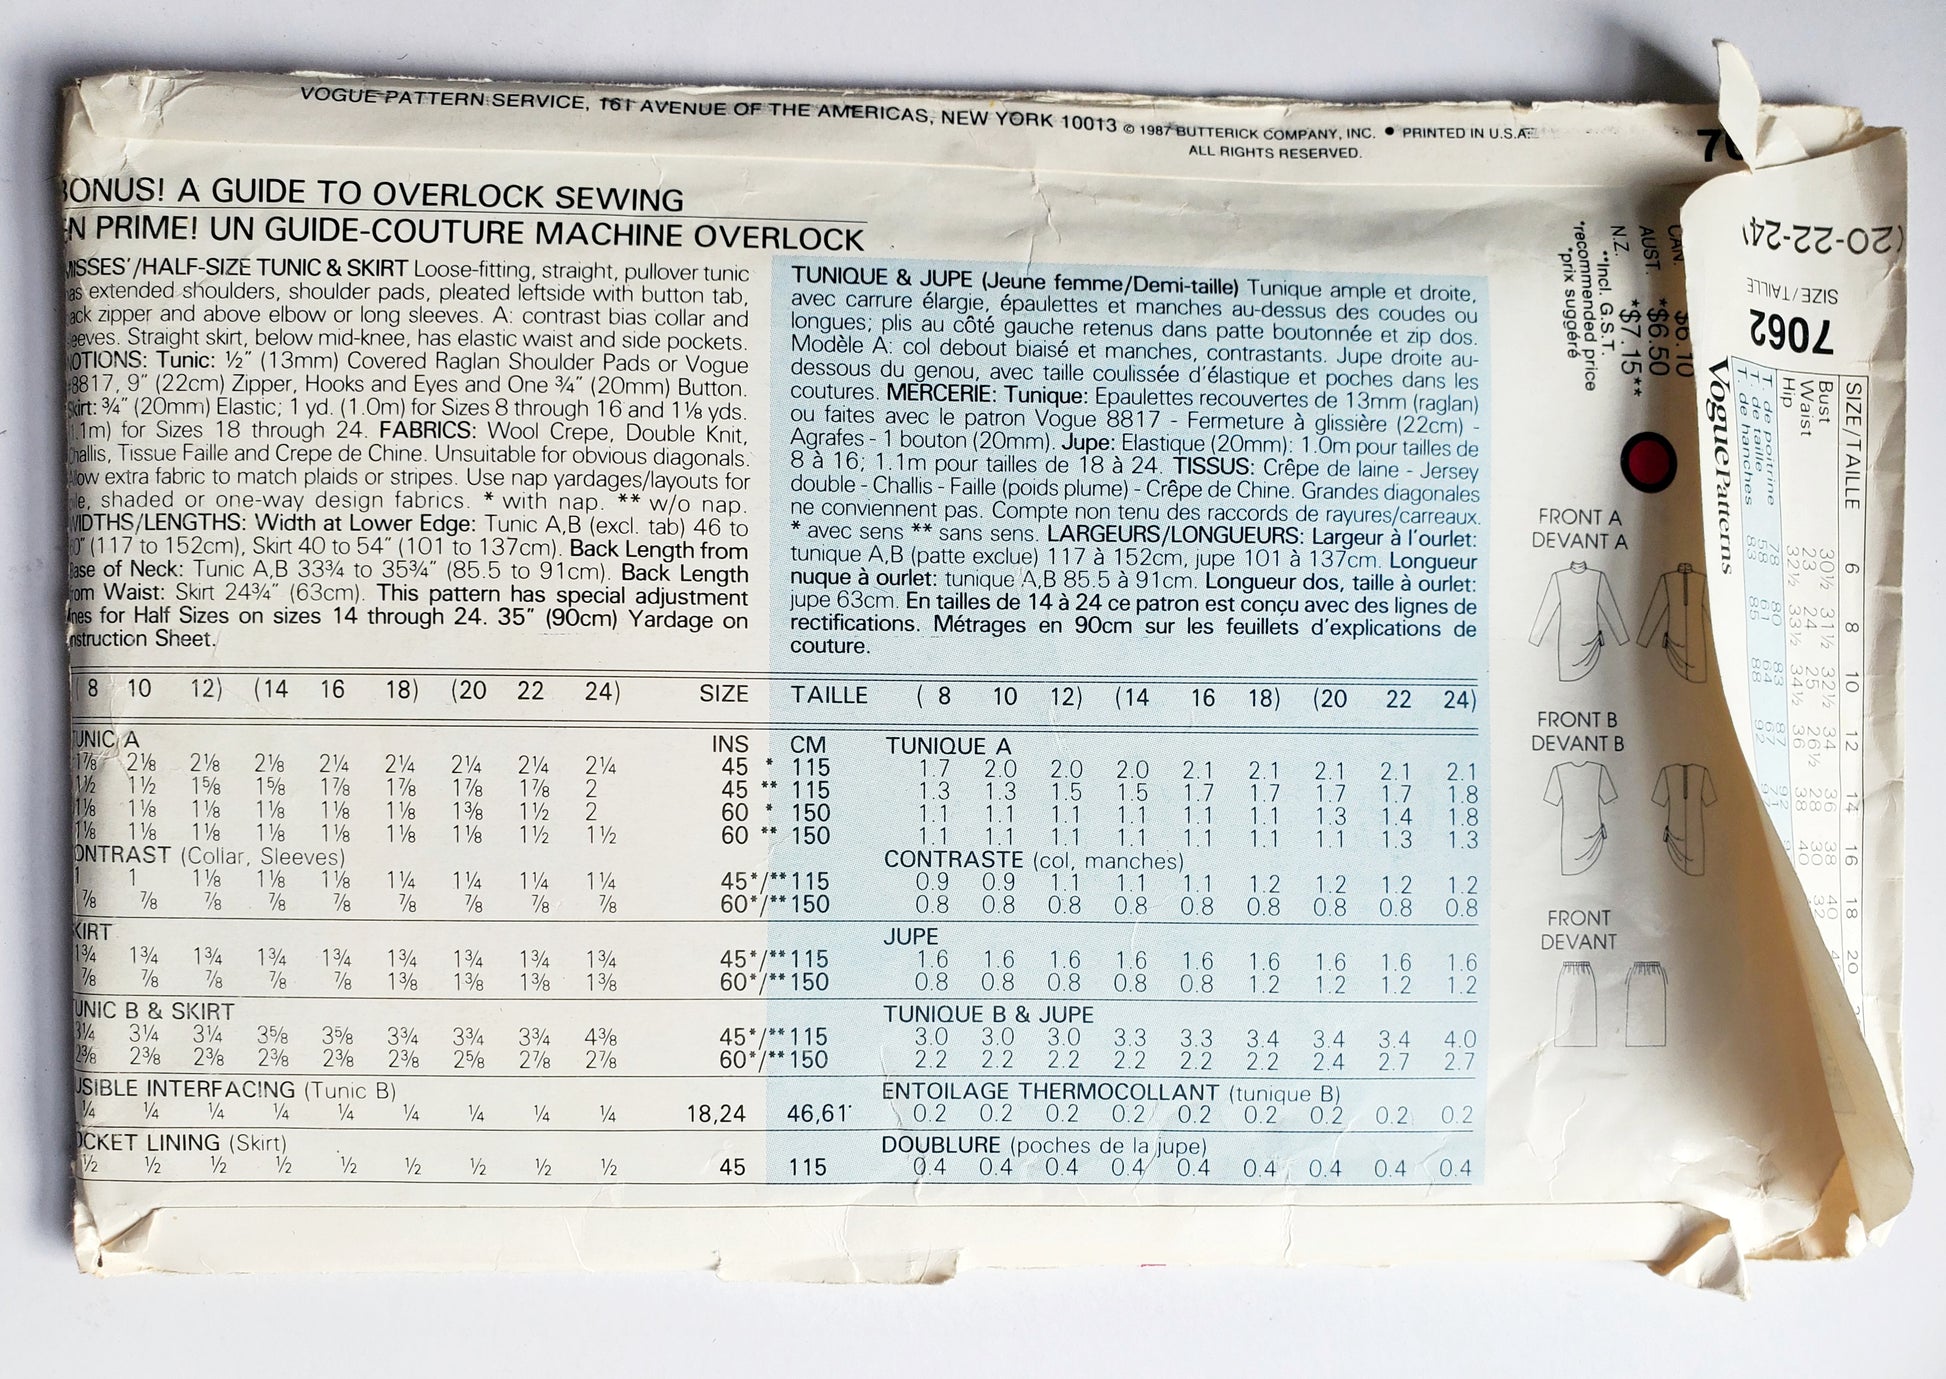 VOGUE PATTERN SERVICE, 161 AVENUE OF THE AMERICAS, NEW YORK 10013 © 1987 BUTTERICK COMPANY, INC. • PRINTED IN U.S.A.
ALL RIGHTS RESERVED.
BONUS! A GUIDE TO OVERLOCK SEWING
EN PRIME! UN GUIDE-COUTURE MACHINE OVERLOCK
MISSES'/HALF-SIZE TUNIC & SKIRT Loose-fitting, straight, pullover tunic
has extended shoulders, shoulder pads, pleated leftside with button tab,
back zipper and above elbow or long sleeves. A: contrast bias collar and
sleeves. Straight skirt, below mid-knee, has elastic waist and side pockets.
NOTIONS: Tunic: ½" (13mm) Covered Raglan Shoulder Pads or Vogue
#8817, 9" (22cm) Zipper, Hooks and Eyes and One ¾" (20mm) Button.
Skirt: ¾" (20mm) Elastic; 1 yd. (1.0m) for Sizes 8 through 16 and 1⅛ yds.
(1.1m) for Sizes 18 through 24. FABRICS: Wool Crepe, Double Knit,
Challis, Tissue Faille and Crepe de Chine. Unsuitable for obvious diagonals.
Allow extra fabric to match plaids or stripes. Use nap yardages/layouts for
pile, shaded or one-way design fabrics. * with nap. ** w/o nap.
WIDTHS/LENGTHS: Width at Lower Edge: Tunic A,B (excl. tab) 46 to
60" (117 to 152cm), Skirt 40 to 54" (101 to 137cm). Back Length from
Base of Neck: Tunic A,B 33¾ to 35¾" (85.5 to 91cm). Back Length
from Waist: Skirt 24¾" (63cm). This pattern has special adjustment
lines for Half Sizes on sizes 14 through 24. 35" (90cm) Yardage on
Instruction Sheet.
TUNIQUE & JUPE (Jeune femme/Demi-taille) Tunique ample et droite,
avec carrure élargie, épaulettes et manches au-dessus des coudes ou
longues; plis au côté gauche retenus dans patte boutonnée et zip dos.
Modèle A: col debout biaisé et manches, contrastants. Jupe droite au-
dessous du genou, avec taille coulissée d'élastique et poches dans les
coutures. MERCERIE: Tunique: Epaulettes recouvertes de 13mm (raglan)
ou faites avec le patron Vogue 8817 - Fermeture à glissière (22cm) -
Agrafes - 1 bouton (20mm). Jupe: Elastique (20mm): 1.0m pour tailles de
8 à 16; 1.1m pour tailles de 18 à 24. TISSUS: Crêpe de laine - Jersey
double - Challis - Faille (poids plume) - Crêpe de Chine. Grandes diagonales
ne conviennent pas. Compte non tenu des raccords de rayures/carreaux.
* avec sens ** sans sens. LARGEURS/LONGUEURS: Largeur à l'ourlet:
tunique A,B (patte exclue) 117 à 152cm, jupe 101 à 137cm. Longueur
nuque à ourlet: tunique A,B 85.5 à 91cm. Longueur dos, taille à ourlet:
jupe 63cm. En tailles de 14 à 24 ce patron est conçu avec des lignes de
rectifications. Métrages en 90cm sur les feuillets d'explications de
couture.
( 8 10 12) (14 16 18) (20 22 24) SIZE TAILLE ( 8 10 12) (14 16 18) (20 22 24)
TUNIC A INS CM TUNIQUE A
1⅞ 2⅛ 2⅛ 2⅛ 2¼ 2¼ 2¼ 2¼ 2¼ 45 * 115 1.7 2.0 2.0 2.0 2.1 2.1 2.1 2.1 2.1
1½ 1½ 1⅝ 1⅝ 1⅞ 1⅞ 1⅞ 1⅞ 2 45 ** 115 1.3 1.3 1.5 1.5 1.7 1.7 1.7 1.7 1.8
1⅛ 1⅛ 1⅛ 1⅛ 1⅛ 1⅛ 1⅜ 1½ 2 60 * 150 1.1 1.1 1.1 1.1 1.1 1.1 1.3 1.4 1.8
1⅛ 1⅛ 1⅛ 1⅛ 1⅛ 1⅛ 1⅛ 1½ 1½ 60 ** 150 1.1 1.1 1.1 1.1 1.1 1.1 1.1 1.3 1.3
CONTRAST (Collar, Sleeves) CONTRASTE (col, manches)
1 1 1⅛ 1⅛ 1⅛ 1¼ 1¼ 1¼ 1¼ 45*/**115 0.9 0.9 1.1 1.1 1.1 1.2 1.2 1.2 1.2
⅞ ⅞ ⅞ ⅞ ⅞ ⅞ ⅞ ⅞ ⅞ 60*/**150 0.8 0.8 0.8 0.8 0.8 0.8 0.8 0.8 0.8
SKIRT JUPE
1¾ 1¾ 1¾ 1¾ 1¾ 1¾ 1¾ 1¾ 1¾ 45*/**115 1.6 1.6 1.6 1.6 1.6 1.6 1.6 1.6 1.6
⅞ ⅞ ⅞ ⅞ ⅞ 1⅜ 1⅜ 1⅜ 1⅜ 60*/**150 0.8 0.8 0.8 0.8 0.8 1.2 1.2 1.2 1.2
TUNIC B & SKIRT TUNIQUE B & JUPE
3¼ 3¼ 3¼ 3⅝ 3⅝ 3¾ 3¾ 3¾ 4⅜ 45*/**115 3.0 3.0 3.0 3.3 3.3 3.4 3.4 3.4 4.0
2⅜ 2⅜ 2⅜ 2⅜ 2⅜ 2⅜ 2⅝ 2⅞ 2⅞ 60*/**150 2.2 2.2 2.2 2.2 2.2 2.2 2.4 2.7 2.7
FUSIBLE INTERFACING (Tunic B) ENTOILAGE THERMOCOLLANT (tunique B)
¼ ¼ ¼ ¼ ¼ ¼ ¼ ¼ ¼ 18,24 46,61 0.2 0.2 0.2 0.2 0.2 0.2 0.2 0.2 0.2
POCKET LINING (Skirt) DOUBLURE (poches de la jupe)
½ ½ ½ ½ ½ ½ ½ ½ ½ 45 115 0.4 0.4 0.4 0.4 0.4 0.4 0.4 0.4 0.4
CAN. $6.10
AUST. *$6.50
N.Z. *$7.15**
**Incl. G.S.T.
*recommended price
*prix suggéré
FRONT A
DEVANT A
FRONT B
DEVANT B
FRONT
DEVANT
(20-22-24)
SIZE/TAILLE
7062
VoguePatterns
SIZE/TAILLE 6 8 10 12 14 16 18 20
Bust 30½ 31½ 32½ 34 36 38 40
Waist 23 24 25 26½ 28 30 32
Hip 32½ 33½ 34½ 36 38 40
T. de poitrine 78 80 83 87 92
T. de taille 58 61 64 67 71
T. de hanches 83 85 88 92